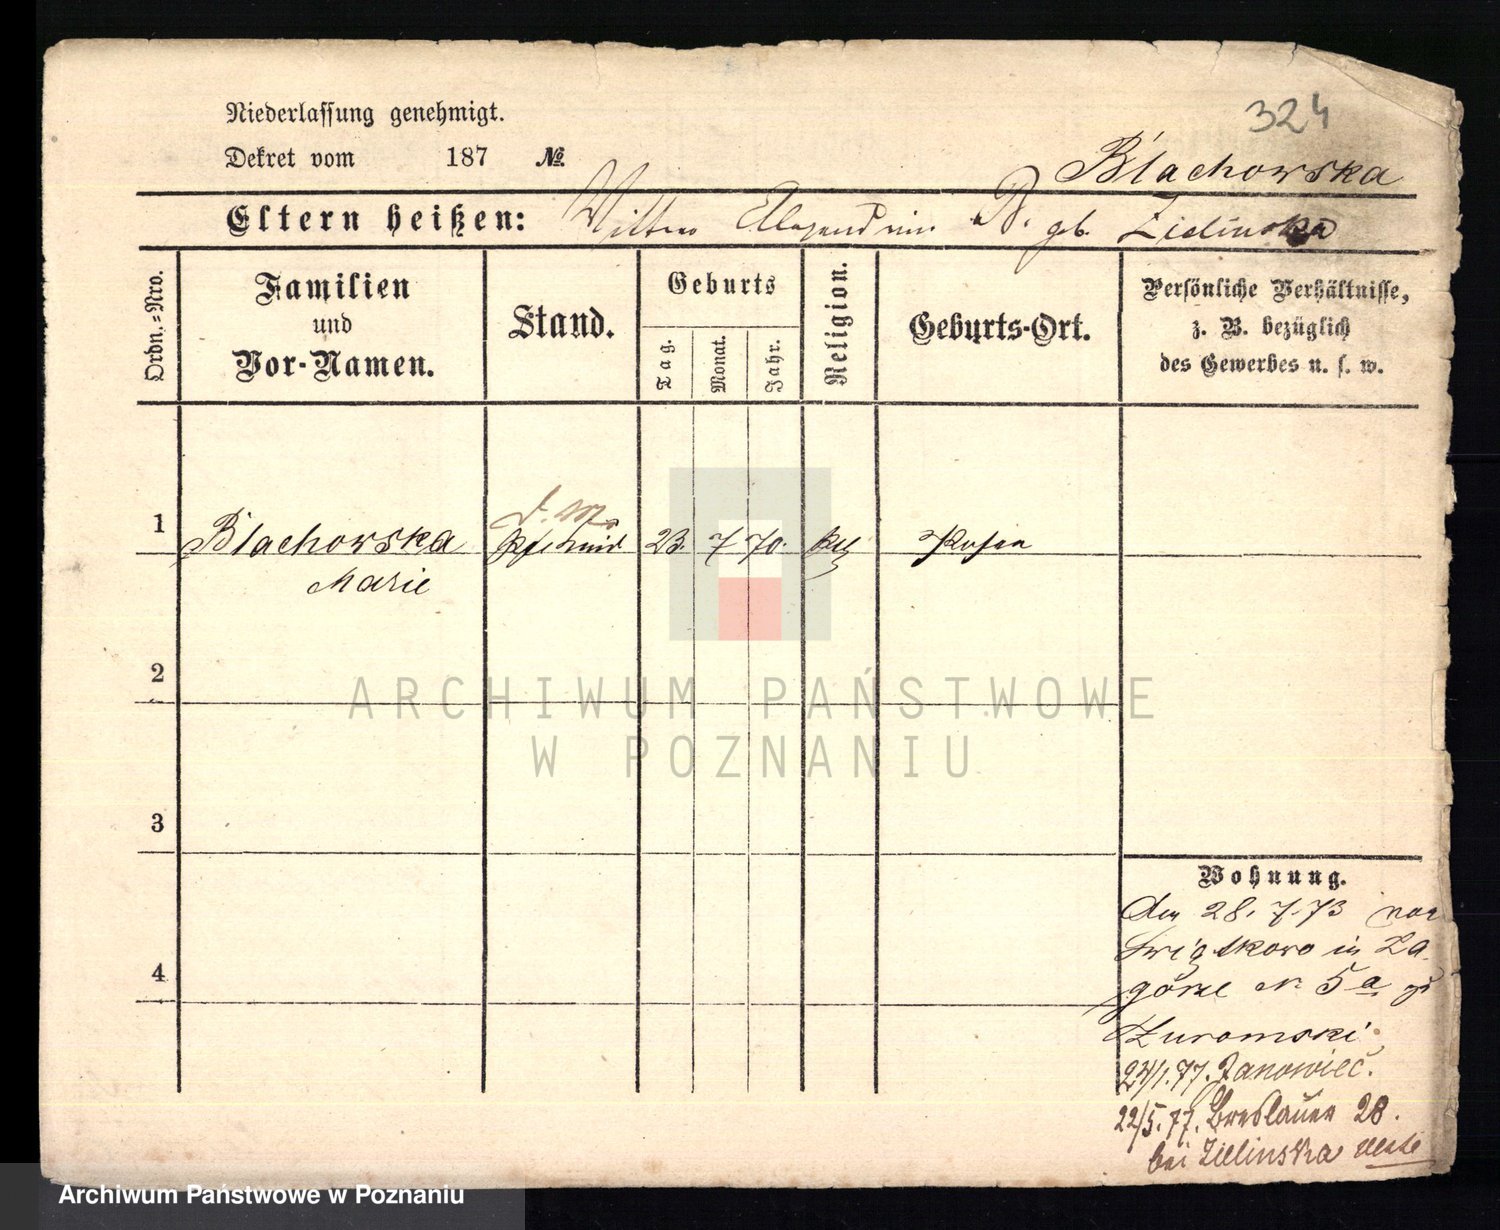 324
Niederlassung genehmigt.
Dekret vom 187 №
Blachowska
Eltern heißen: B. geb. Zielinska
Ordn.-Nro.
Familien
und
Vor-Namen.
Stand.
Geburts
Tag.
Monat.
Jahr.
Religion.
Geburts-Ort.
Persönliche Verhältnisse,
z. B. bezüglich
des Gewerbes u. s. w.
1
Blachowska 23. 7 70. Posen
Marie
2
3
4
Wohnung.
den 28. 7. 73
in Za-
górze № 5a
Zuromski
24/1. 77. Janowiec.
22/5. 77. Breslauer 28.
bei Zielinska
ARCHIWUM PAŃSTWOWE
W POZNANIU
Archiwum Państwowe w Poznaniu